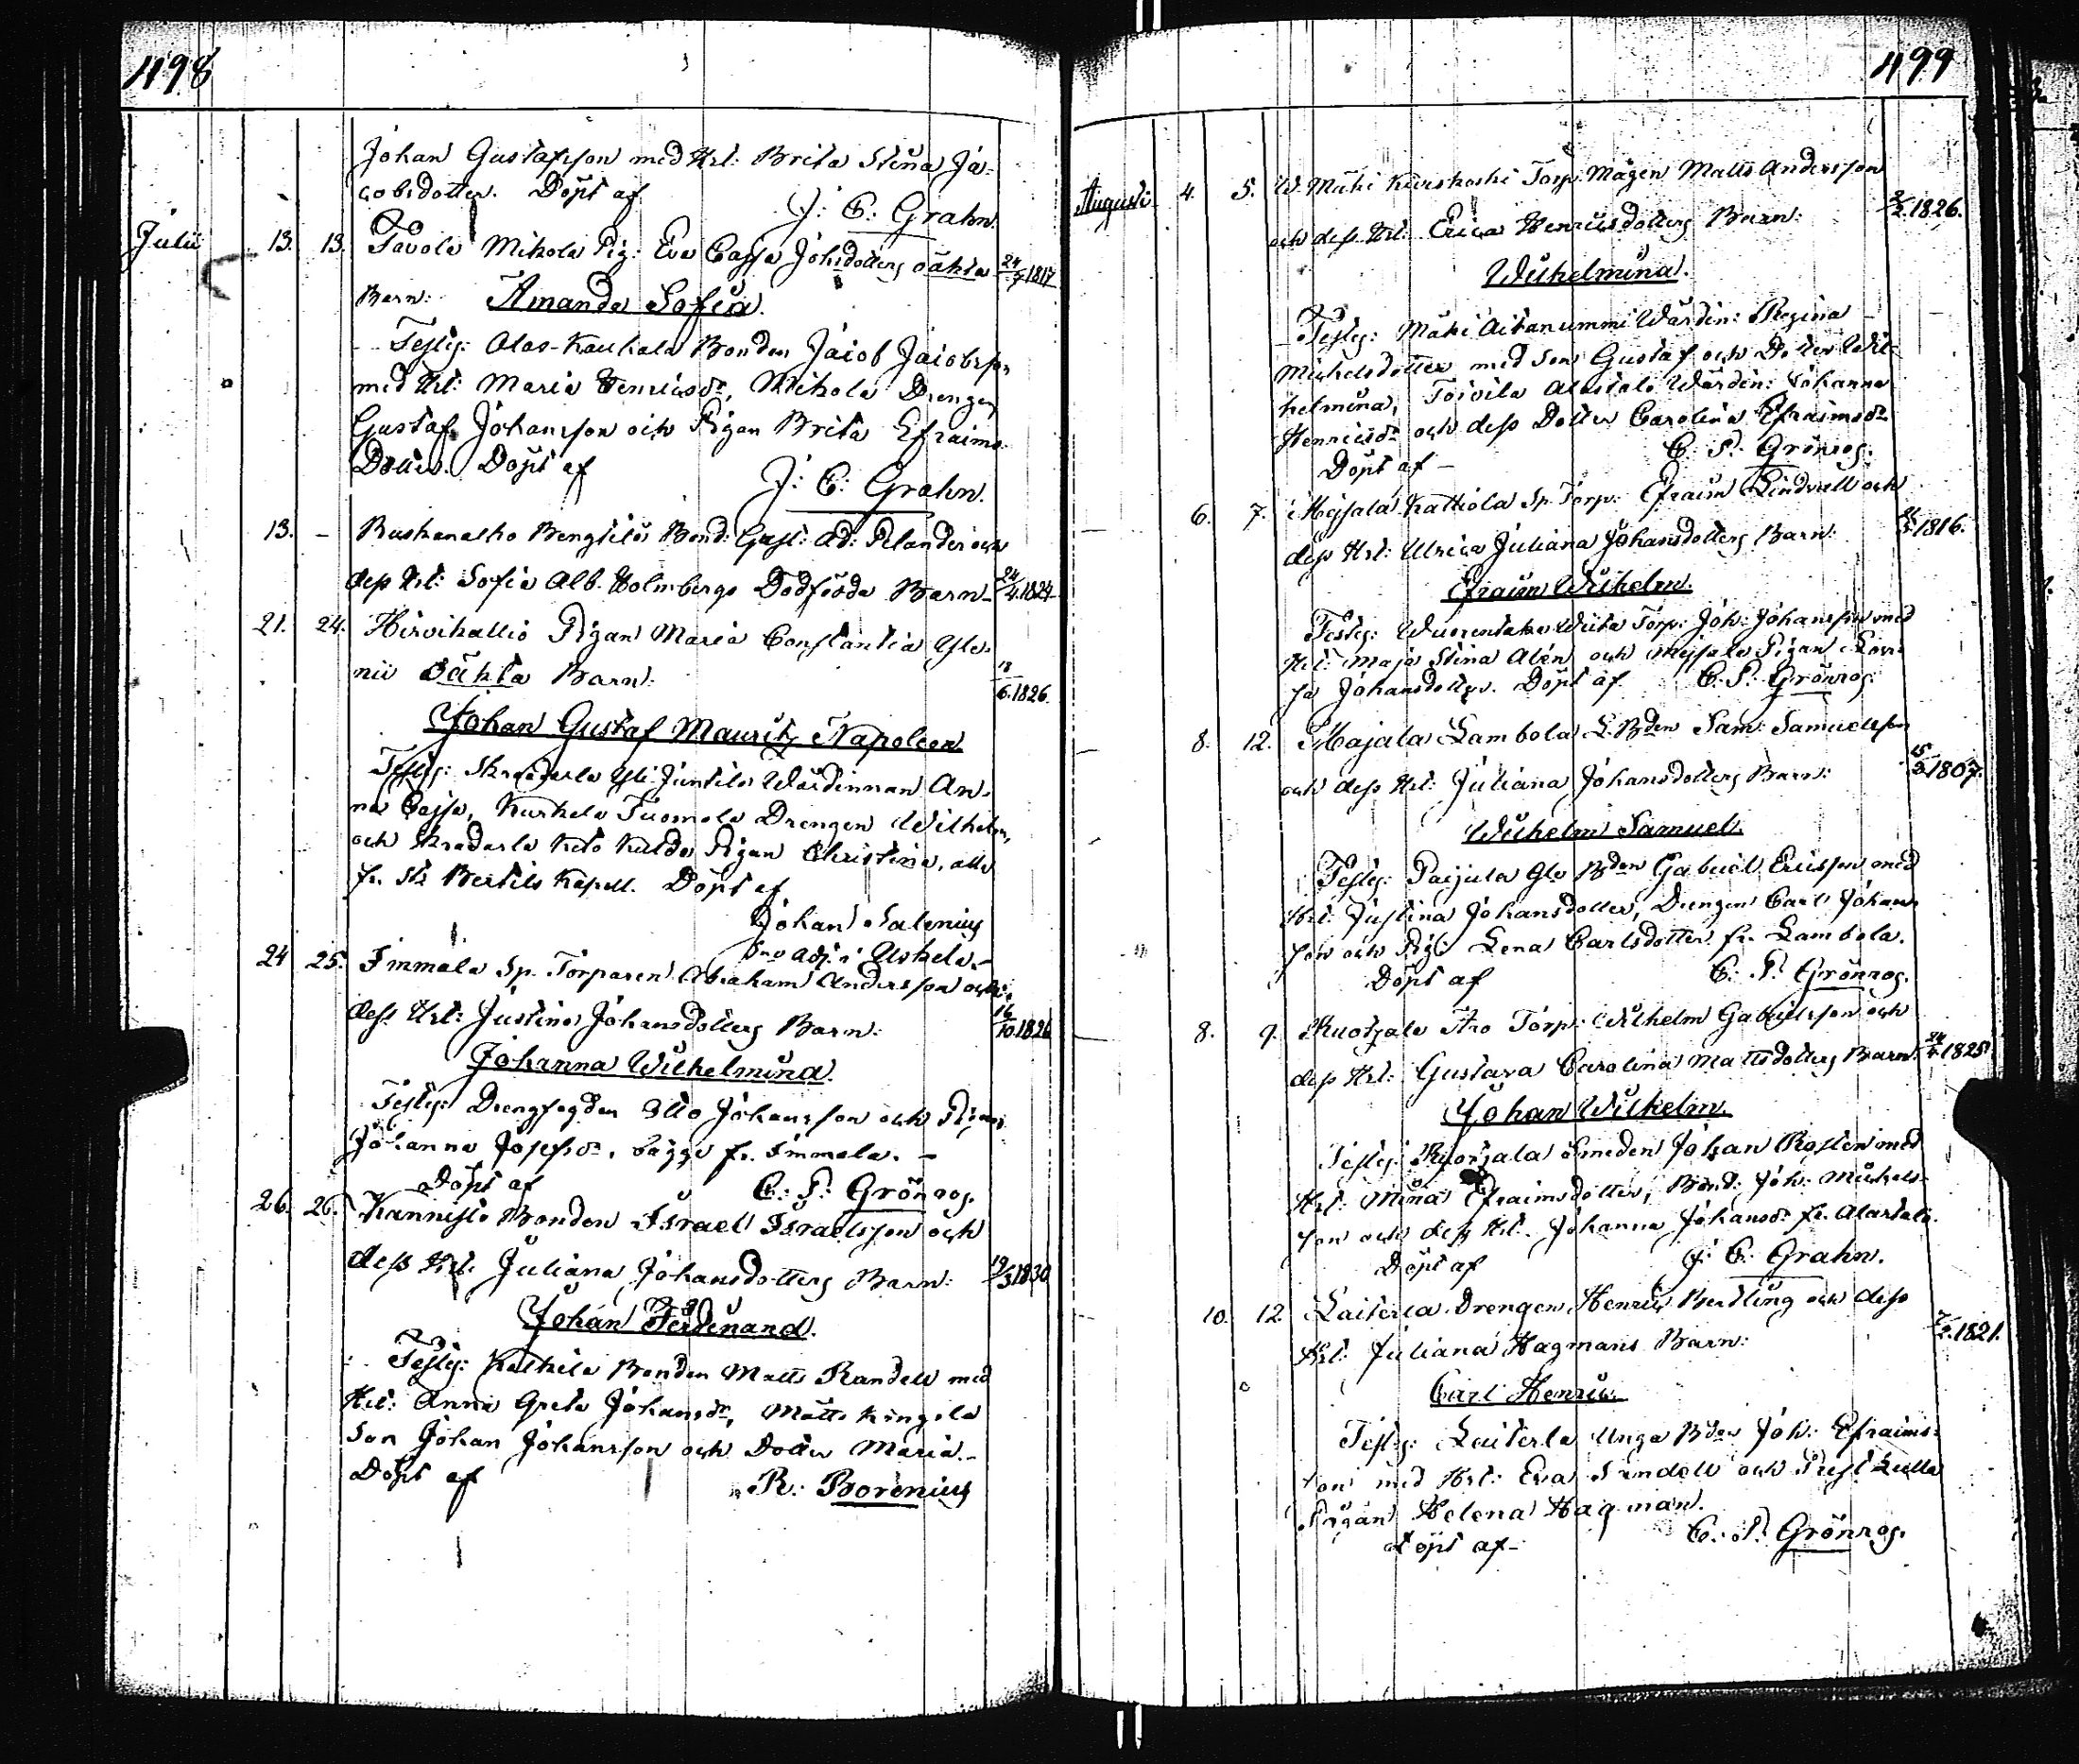 498
Johan Gustafsson med Hst: Brita Stina Ja-
cobsdotter. Döpt af
J: E: Grahn.
Julii 13. 13. Tavola Mikola Pig: Eva Cajsa Johsdotters oäkta 24/7 1817
Barn: Amanda Sofia.
Testes: Alas-Kaukala Bonden Jacob Jacobsson
med Hst: Maria Henricsdr, Mikola Drengen
Gustaf Johansson och Pigan Brita Efraims-
Dotter. Döpt af
J: E: Grahn.
13. - Ruskanalho Bengtilä Bond: Gust: Ad: Pelander och
dess Hst: Sofia Alb. Holmbergs Dödfödda Barn- 24/4.1824
21. 24. Hirvikallio Pigan Maria Constantia Gle-
nii oäkta Barn: 18/6.1826.
Johan Gustaf Mauritz Napoleon
Testes: Skradarla Yli Juntila Wärdinnan An-
na Cajsa, Kurkela Tuomola Drengen Wilhelm,
och Skradarla Pigan Christina, alla
fr. St Bertils Kapell. Döpt af
Johan Salenius
Adj: i Uskela.-
24 25. Immala Sp. Torparen Abraham Andersson och
dess Hst: Justina Johansdotters Barn: 16/10.1826
Johanna Wilhelmina.
Testes: Drengfogden Otto Johansson och Pigan
Johanna Josefsdr, bägge fr. Immala. -
Döpt af C. P. Grönroos.
26. 26. Kannisto Bonden Israel Israelsson och
dess Hst. Juliana Johansdotters Barn: 19/3 1830
Johan Ferdinand.
Testes: Katkila Bonden Matts Randell med
Hst: Anna Greta Johansdr, Matts Kingola
Son Johan Johansson och Dotter Maria.-
Döpt af
R: Borenius
499
Augusti 4. 5. W. Mäki Kiviskoski Torp: Mågen Matts Andersson
och dess Hst: Erica Henricsdotters Barn: 2/2.1826.
Wilhelmina.
Testes: Mäki Aitanummi Wärdin: Regina
Michelsdotter med Son Gustaf och Dotter Wil-
helmina, Toivila Alastalo Wärdin: Johanna
Henricsdr och dess Dotter Carolina Efraimsdr
Döpt af - C. P. Grönroos.
6. 7. Mejsala Kattiola Sp Torp: Efraim Lindvall och
dess Hst: Ulrica Juliana Johansdotters Barn: 1816.
Efraim Wilhelm.
Testes: Torp: Joh: Johansson med
Hst: Maja Stina Alén och Mejsala Pigan Lovi-
sa Johansdotter. Döpt af C. P. Grönroos.
8. 12. Majala Lambola L. Bden Sam: Samuelsson
och dess Hst: Juliana Johansdotters Barn: 1807.
Wilhelm Samuel.
Testes: Paijula Gle Bden Gabriel Ericsson med
Hst: Justina Johansdotter, Drengen Carl Johans-
son och Pig: Lena Carlsdotter fr. Lambola.
Döpt af C. P. Grönroos.
8. 9. Kuotzala Aro Torp: Wilhelm Gabrielsson och
dess Hst: Gustava Carolina Mattsdotters Barn: 1825.
Johan Wilhelm
Testes: Kuotzala Smeden Johan Rosten med
Hst: Mina Efraimsdotter, Bond: Joh: Michels-
son och dess Hst. Johanna Johansdr fr. Alastalo.
Döpt af J: E: Grahn.
10. 12. Laiterla Drengen Henric Berdling och dess
Hst: Juliana Hagmans Barn: 7/2.1821.
Carl Henric.
Testes: Laiterla Unga Bden Joh: Efraims-
son med Hst: Eva Sandell och
Pigan Helena Hagman.
Döpt af- C. P. Grönroos.